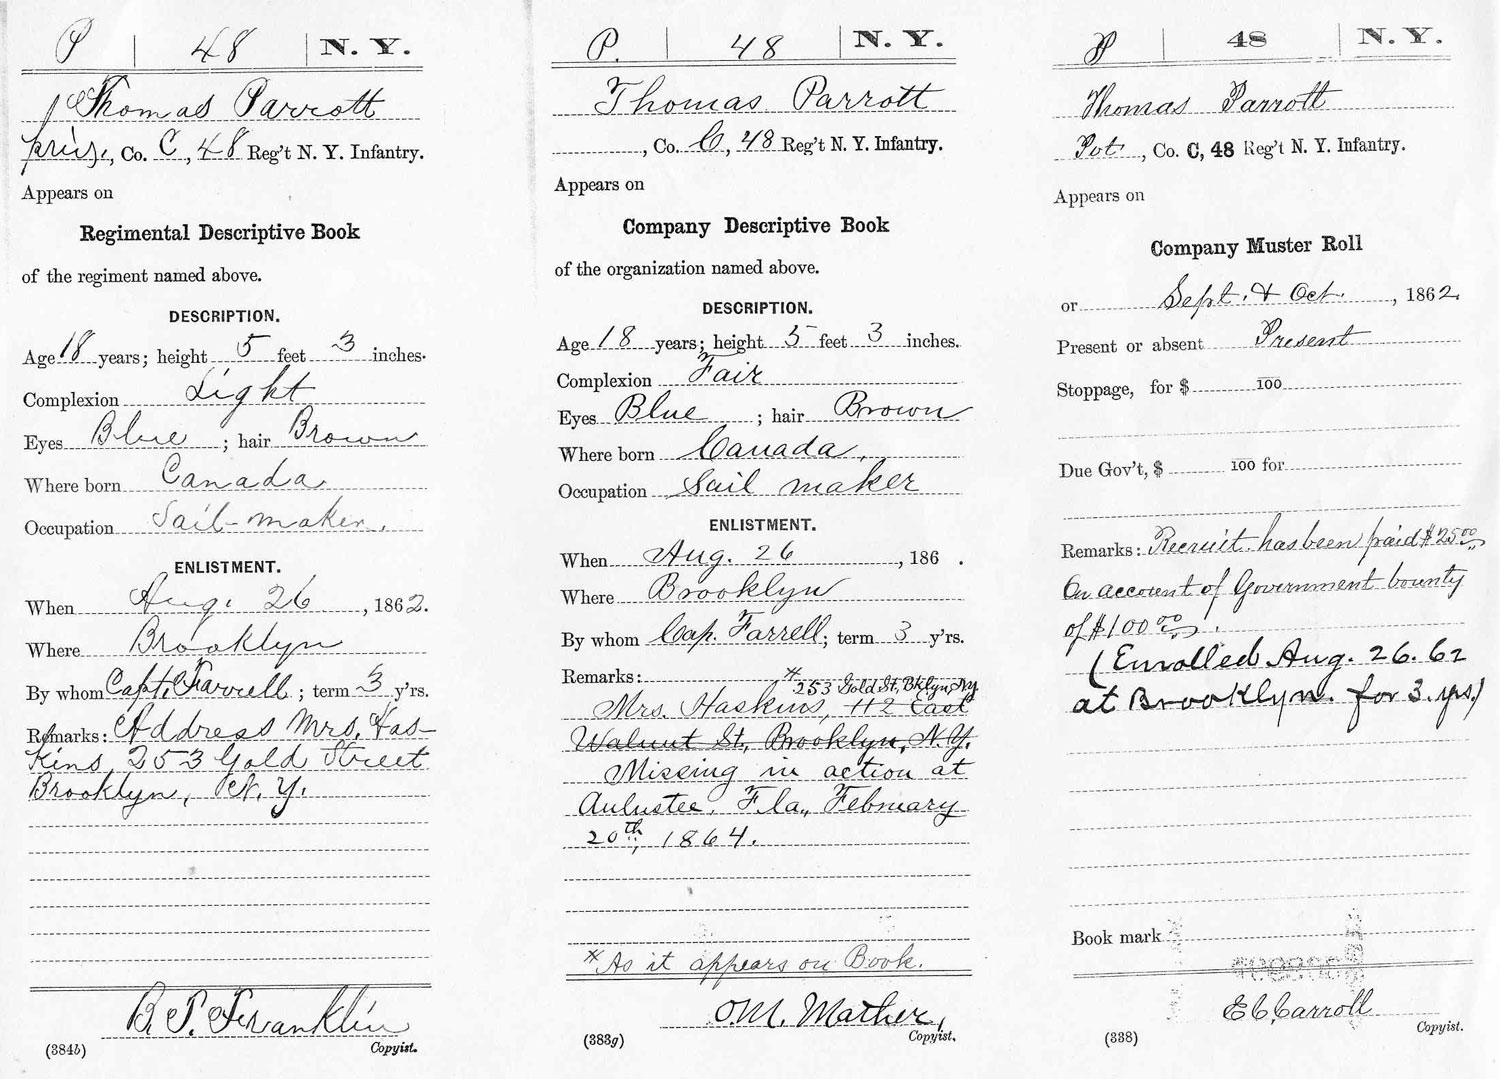 P | 48 | N. Y.
Thomas Parrott
priv., Co. C, 48 Reg't N. Y. Infantry.
Appears on
Regimental Descriptive Book
of the regiment named above.
DESCRIPTION.
Age 18 years; height 5 feet 3 inches.
Complexion Light
Eyes Blue ; hair Brown
Where born Canada
Occupation Sail-maker.
ENLISTMENT.
When Aug. 26, 1862.
Where Brooklyn
By whom Capt. Farrell ; term 3 y'rs.
Remarks: Address Mrs. Has-
kins, 253 Gold Street
Brooklyn, N. Y.
B. T. Franklin
(384b) Copyist.
P. | 48 | N. Y.
Thomas Parrott
, Co. C, 48 Reg't N. Y. Infantry.
Appears on
Company Descriptive Book
of the organization named above.
DESCRIPTION.
Age 18 years; height 5 feet 3 inches.
Complexion Fair
Eyes Blue ; hair Brown
Where born Canada.
Occupation Sail maker
ENLISTMENT.
When Aug. 26, 186 .
Where Brooklyn
By whom Cap. Farrell; term 3 y'rs.
Remarks: * 253 Gold St, Bklyn, NY
Mrs. Haskins, 112 East
Walnut St, Brooklyn, N.Y.
Missing in action at
Aulustee, Fla., February
20th, 1864.
* As it appears on Book.
O.M. Mather,
(383g) Copyist.
P | 48 | N. Y.
Thomas Parrott
Pvt, Co. C, 48 Reg't N. Y. Infantry.
Appears on
Company Muster Roll
or Sept. & Oct., 1862.
Present or absent Present
Stoppage, for $ 100
Due Gov't, $ 100 for
Remarks: Recruit. has been paid $25.00
On account of Government bounty
of $100.00.
(Enrolled Aug. 26. 62
at Brooklyn. for 3. yrs.)
Book mark
E C Carroll
(338) Copyist.